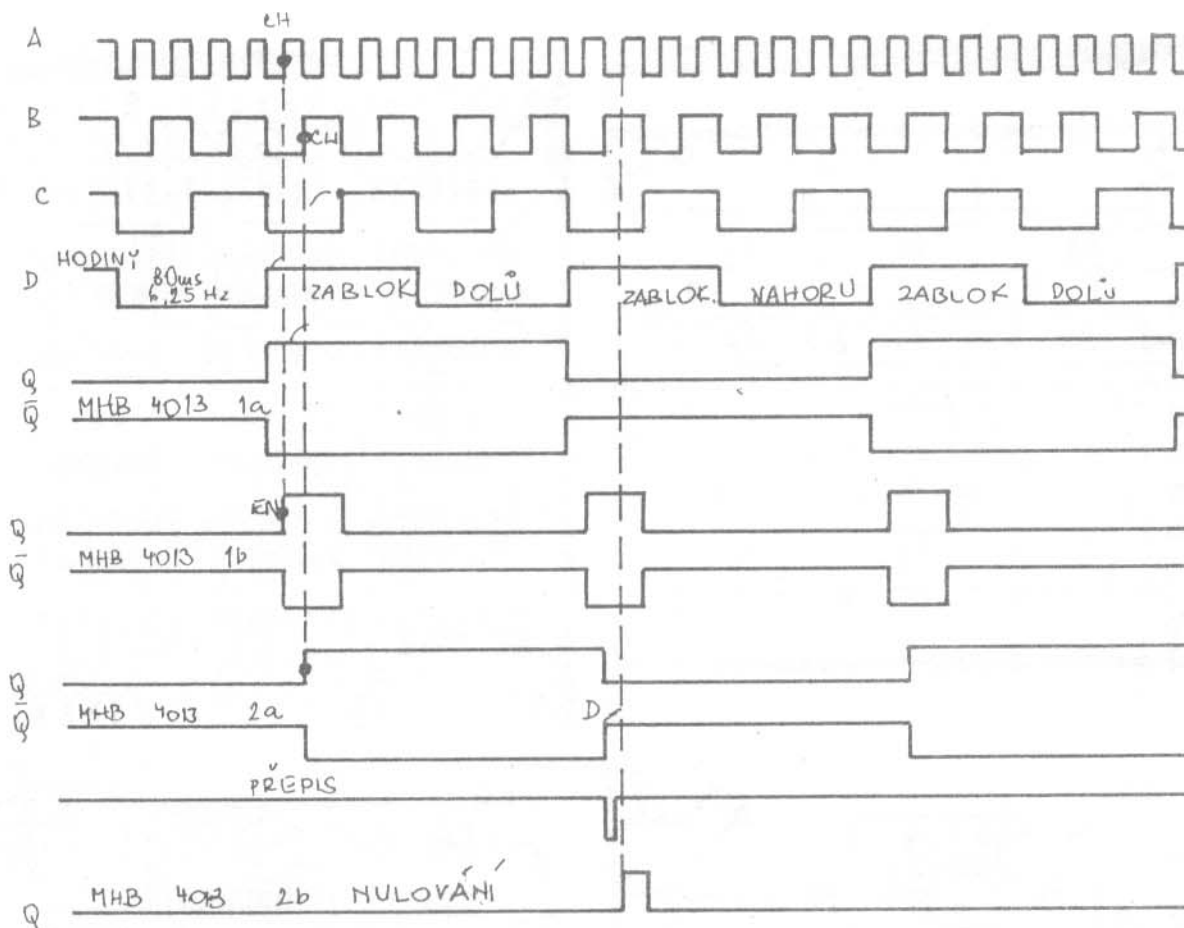 CH
A
B
CH
C
HODINY
D
80ms
6,25 Hz
ZABLOK
DOLŮ
ZABLOK.
NAHORU
ZABLOK
DOLŮ
Q
MHB 4013 1a
Q̄
EN
Q
MHB 4013 1b
Q̄
Q
MHB 4013 2a
D
Q̄
PŘEPIS
MHB 4013 2b NULOVÁNÍ
Q